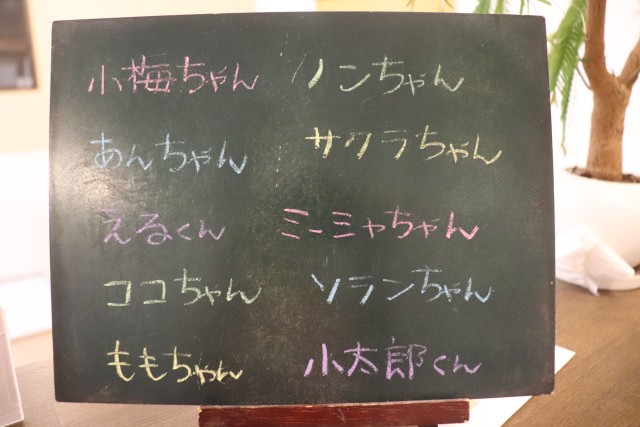 小梅ちゃん ノンちゃん
あんちゃん サクラちゃん
えるくん ミーミャちゃん
ココちゃん ソランちゃん
ももちゃん 小太郎くん